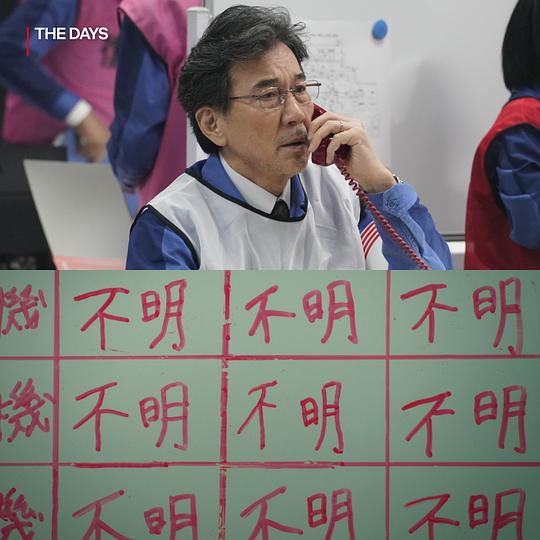 THE DAYS
機 不明 不明 不明
機 不明 不明 不明
機 不明 不明 不明